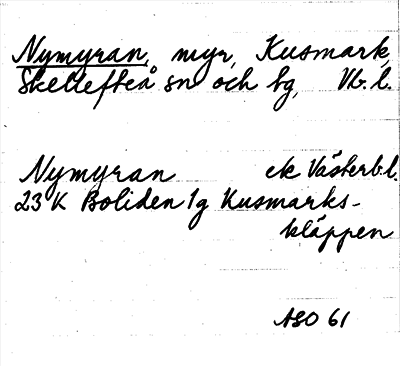 Nymyran, myr, Kusmark,
Skellefteå sn och bg, Vb. l.
Nymyran ek Västerb.l.
23 K Boliden 1g Kusmarks-
kläppen
ASO 61